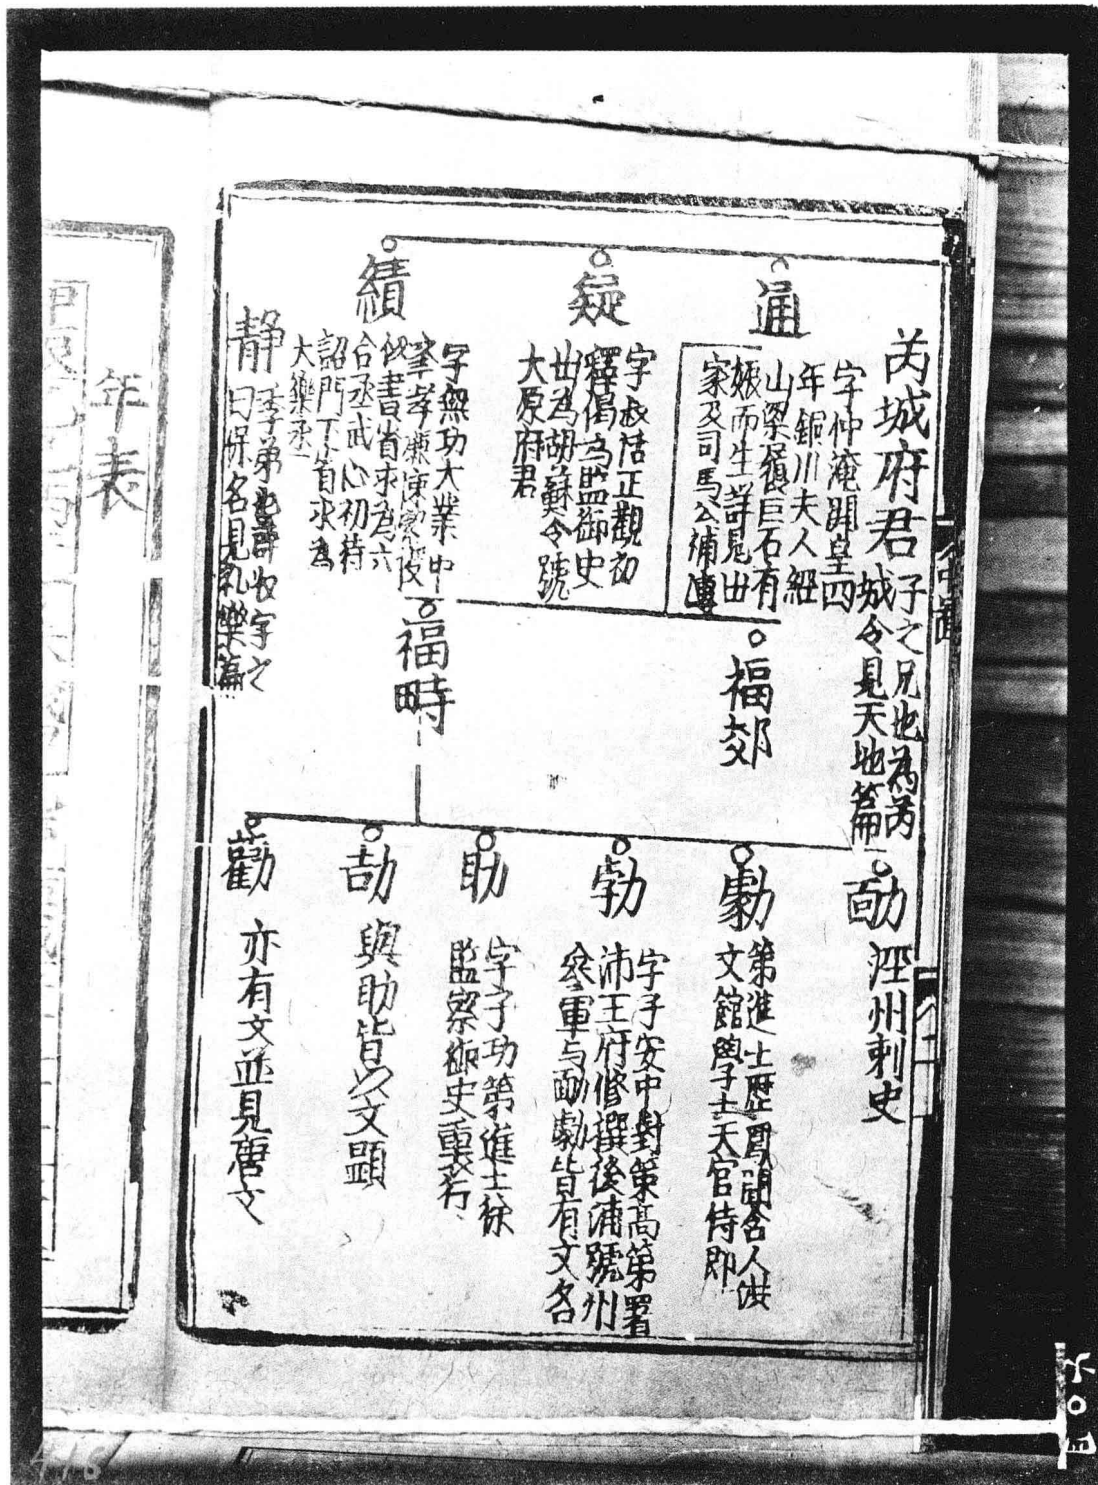 芮城府君
子之兄也為芮
城令見天地篇
通
字仲淹開皇四
年銅川夫人經
山梁履巨石有
娠而生詳見世
家及司馬公補傳
疑
字叔恬正觀初
釋褐為監御史
出為胡蘇令號
大原府君
績
字無功大業中
舉孝廉除
祕書省求為六
合丞武心初待
詔門下省求為
大樂丞
靜
季弟也
曰保名見禮樂篇
福郊
福時
勔
涇州刺史
勮
第進士歷鳳閣舍人洪
文館學士天官侍郎
勃
字子安中對策高第署
沛王府修撰後浦號州
參軍与勔勮皆有文名
助
字子功第進士徐
監察御史重發行
劼
與助皆以文顯
勸
亦有文並見唐文
年表